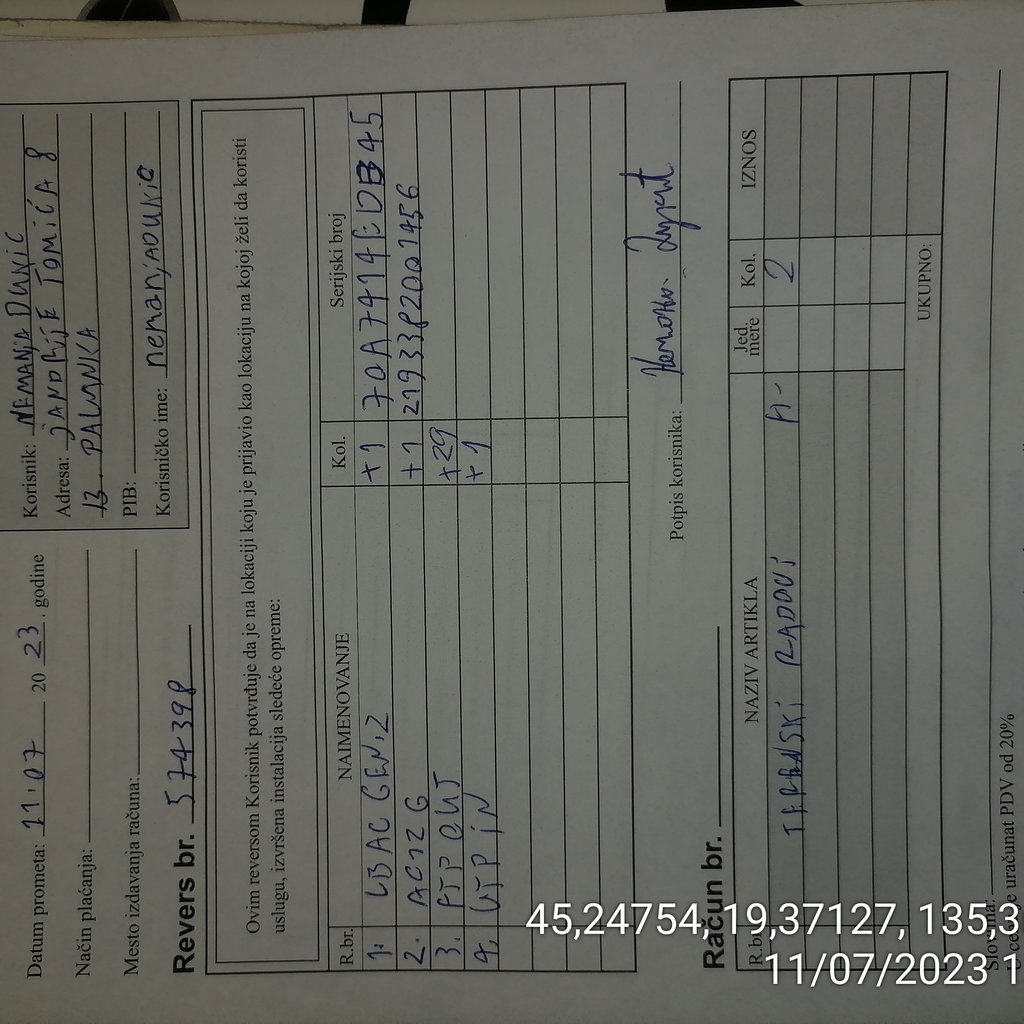 Datum prometa: 11.07 2023. godine
Način plaćanja:
Mesto izdavanja računa:
Korisnik: NEMANJA DUKIĆ
Adresa: JANDRIJE TOMIĆA 8
B. PALANKA
PIB:
Korisničko ime: nemanjadukic
Revers br. 574398
Ovim reversom Korisnik potvrđuje da je na lokaciji koju je prijavio kao lokaciju na kojoj želi da koristi
uslugu, izvršena instalacija sledeće opreme:
R.br. NAIMENOVANJE Kol. Serijski broj
1. LBAC GEN2 +1 70A7414EDB45
2. AC12 G +1 21933P2001456
3. FTP OUT +29
4. UTP IN +1
Potpis korisnika:
Račun br.
R.br. NAZIV ARTIKLA Jed. mere Kol. IZNOS
TERENSKI RADOVI 2
UKUPNO:
Slovima:
U cenu je uračunat PDV od 20%
45,24754, 19,37127, 135,3
11/07/2023 1